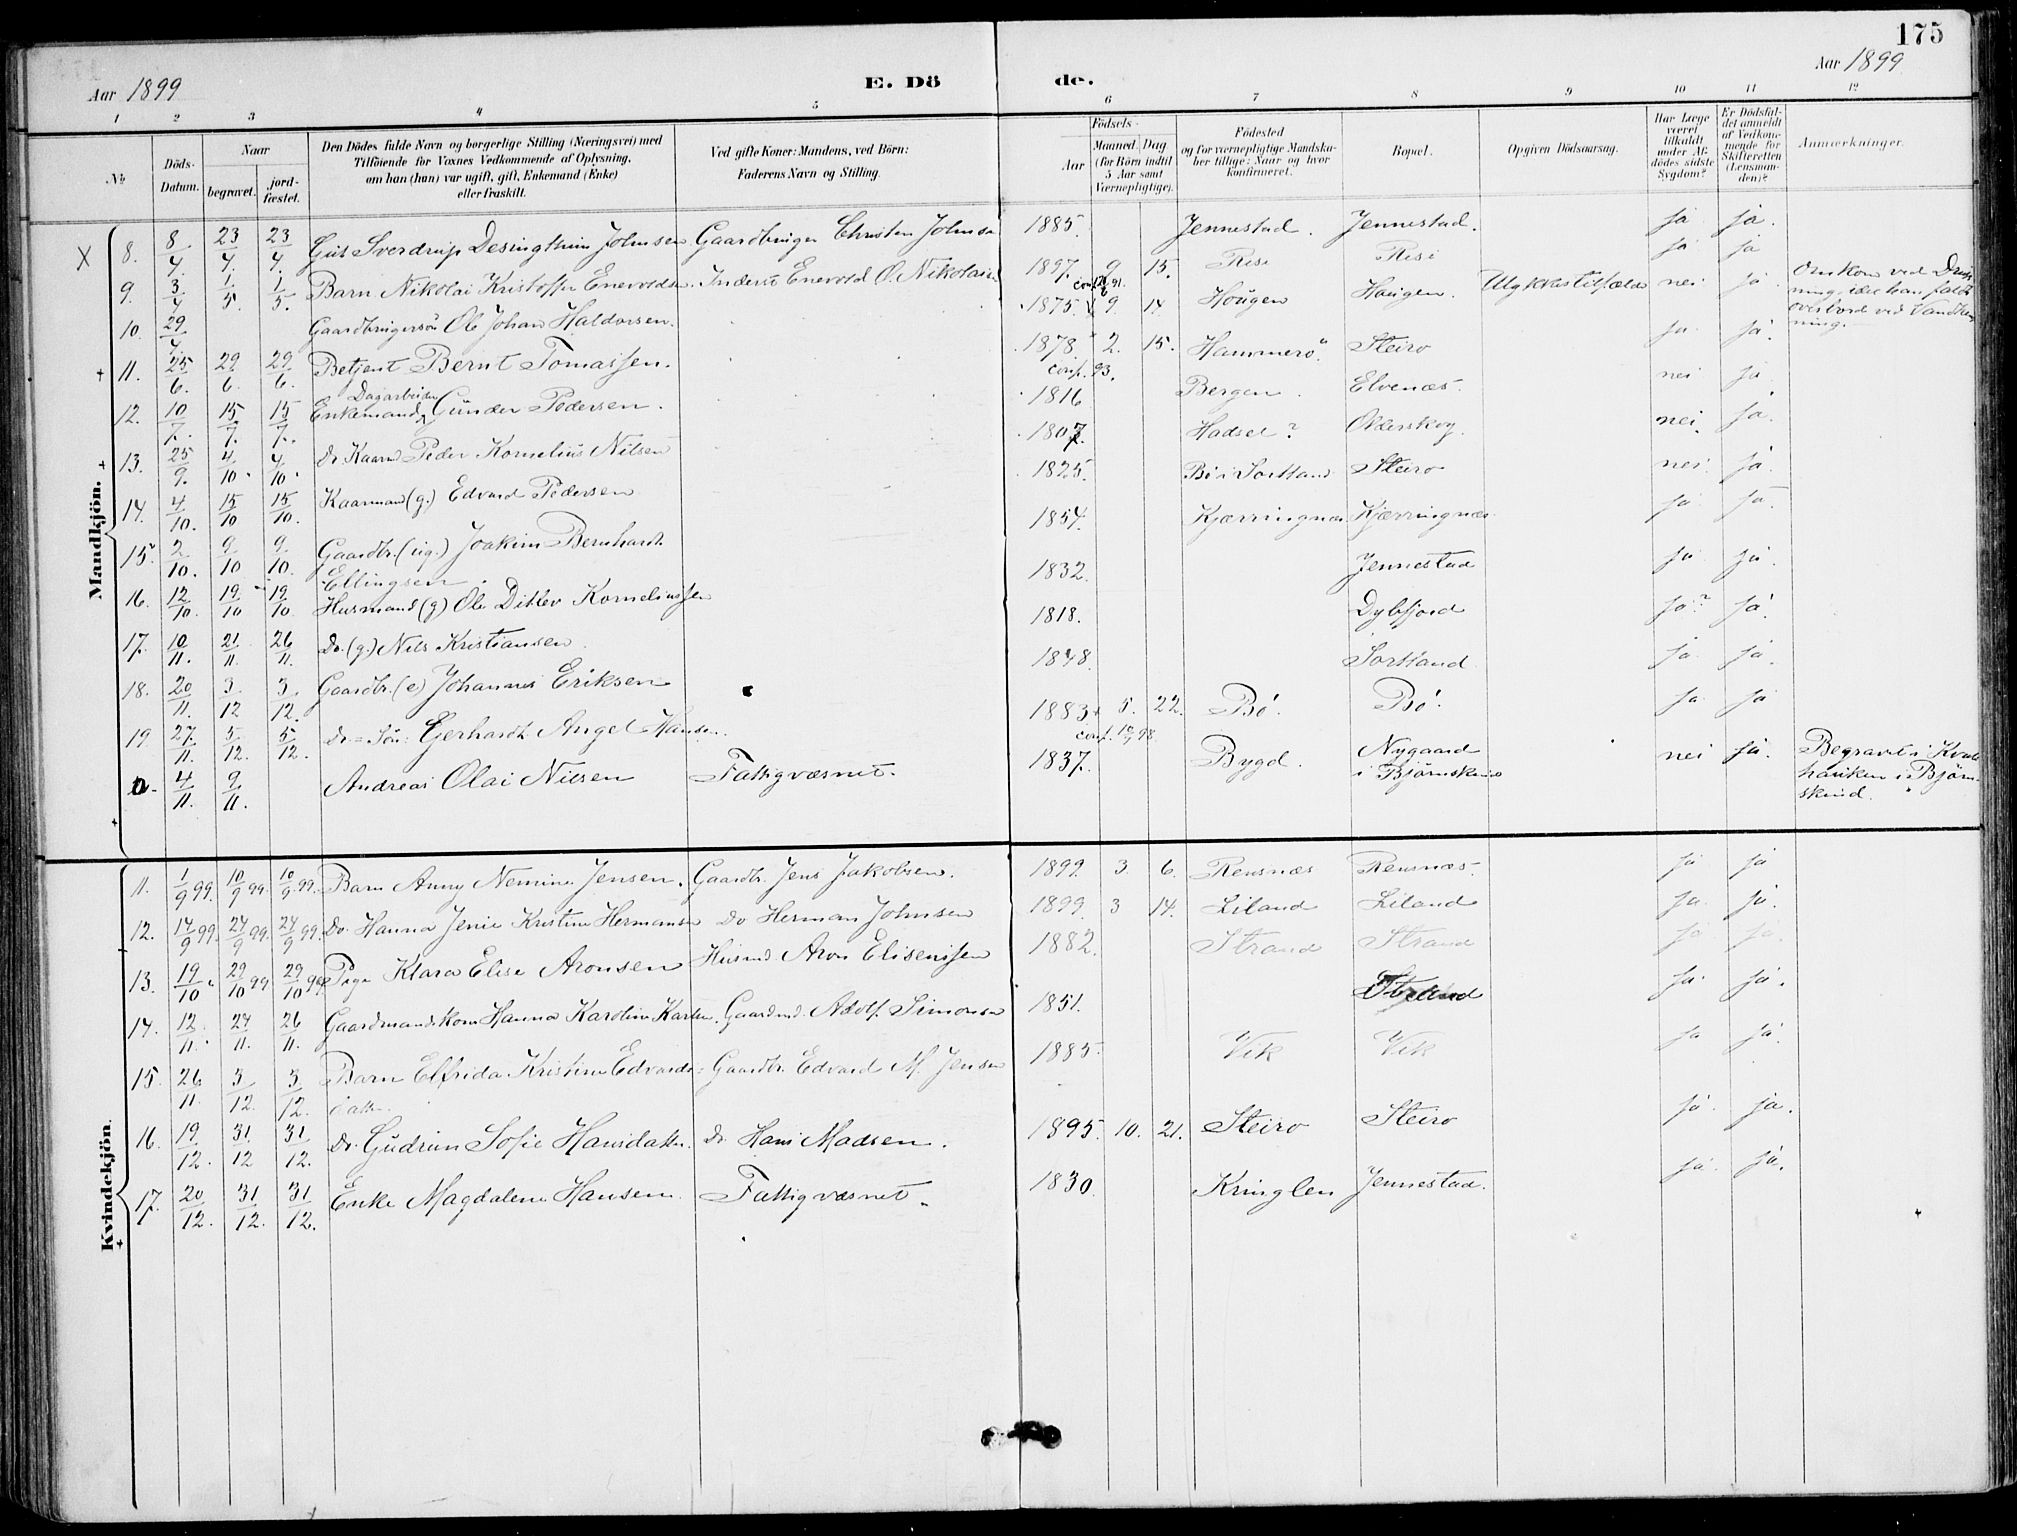 175
Aar 1899
E. Dö
de.
Aar 1899
1 2 3 4 5 6 7 8 9 10 11 12
№
Döds-Datum.
Naar
begravet.
jord-fæstet.
Den Dödes fulde Navn og borgerlige Stilling (Næringsvei) med
Tilföiende for Voxnes Vedkommende af Oplysning,
om han (hun) var ugift, gift, Enkemand (Enke)
eller fraskilt.
Ved gifte Koner: Mandens, ved Börn:
Faderens Navn og Stilling.
Födsels-
Aar
Maaned. Dag
(for Börn indtil
5 Aar samt
Værnepligtige).
Födested
og for værnepligtige Mandska-
ber tillige: Naar og hvor
konfirmeret.
Bopæl.
Opgiven Dödsaarsag.
Har Læge
været
tilkaldt
under Af-
dödes sidste
Sygdom?
Er Dödsfal-
det anmeldt
af Vedkom-
mende for
Skifteretten
(Lensman-
den)?
Anmærkninger.
Mandkjön.
X 8. 8/4. 23/4. 23/4. Sverdrup Johnsen Gaardbruger Christen Johnsen 1885. Jennestad. Jennestad. ja ja.
9. 3/4 1/5. 1/5. Barn Nikolai Kristoffer Enevoldsen. Inderst Enevold O. Nikolaisen 1897. 9 15. Risi Risi ja ja
10. 29/4. Gaardbrugersön Ole Johan Haldorsen. 1875. 9. 14. Haugen Haugen. Ulykkestilfælde nei ja Omkom ved Druk-
ning, idet han faldt
overbord ved
ning.
11. 25/6. 29/6. 29/6. Betjent Bernt Tomassen. 1878. 2. 15. Hammerö. Steiro ja ja.
conf. 93.
12. 10/7. 15/7. 15/7. Enkemand Dagarbeider Günder Pedersen. 1816 Bergen. Elvenæs. nei ja
13. 25/9. 4/10. 4/10. Do. Kaarm Peder Kornelius Nilsen 1807. Hadsel? Olderskog. nei. ja.
14. 4/10. 15/10 15/10. Kaarmand (g.) Edvard Pedersen 1825. Bö i Sortland Steiro nei. ja.
15. 2/10. 9/10 9/10. Gaardbr. (ug.) Joakim Bernhard
Ellingsen 1854. Kjærringnæs Kjærringnæs. ja. ja.
16. 12/10. 19/10 19/10. Husmand (g) Ole Ditlev Korneliussen 1832. Jennestad ja ja.
17. 10/11. 21/11. 26/11. Do. (g.) Nils Kristiansen. 1818. Dybfjord ja? ja.
18. 20/11. 3/12 3/12. Gaardbr. (e) Johannes Eriksen 1848. Sortland. ja. ja.
19 27/11. 5/12. 5/12. Do = Sön: Gerhardt Angel Hansen. 1883 5. 22. Bö. Bö. ja. ja
conf. 98.
4/11. 9/11. Andreas Olai Nilsen Fattigvæsnet. 1837. Bygd. Nygaard
i Björnskind nei ja. Begravet i
i Björn-
skind.
Kvindekjön.
11. 1/9 99. 10/9 99. 10/9 99. Barn Anny Nemine Jensen. Gaardbr. Jens Jakobsen. 1899 3. 6. Reusnæs Reusnæs. ja ja
12. 14/9 99. 24/9 99. 24/9 99. Do. Hanna Jenie Kristine Hermansen Do Herman Johnsen 1899. 3 14. Liland Liland ja. ja.
13. 19/10 29/10 99 29/10 99 Pige Klara Elise Aronsen Husmd. Aron Elisenssen 1882. Strand Strand ja ja.
14. 12/11. 24/11. 26/11. Gaardmandskone Hanna Karoline Karlsen. Gaardmd. Adolf Simonsen 1851. ja. ja.
15. 26/11. 3/12. 3/12. Barn Elfrida Kristine Edvards- Gaardbr. Edvard M. Jensen 1885. Vik Vik ja ja.
datter.
16. 19/12. 31/12 31/12. Do. Güdrun Sofie Hansdatter. Do. Hans Madsen. 1895. 10. 21. Steiro Steiro ja. ja.
17. 20/12. 31/12. 31/12. Enke Magdalena Hansen. Fattigvæsnet. 1830. Kringlen Jennestad. ja. ja.